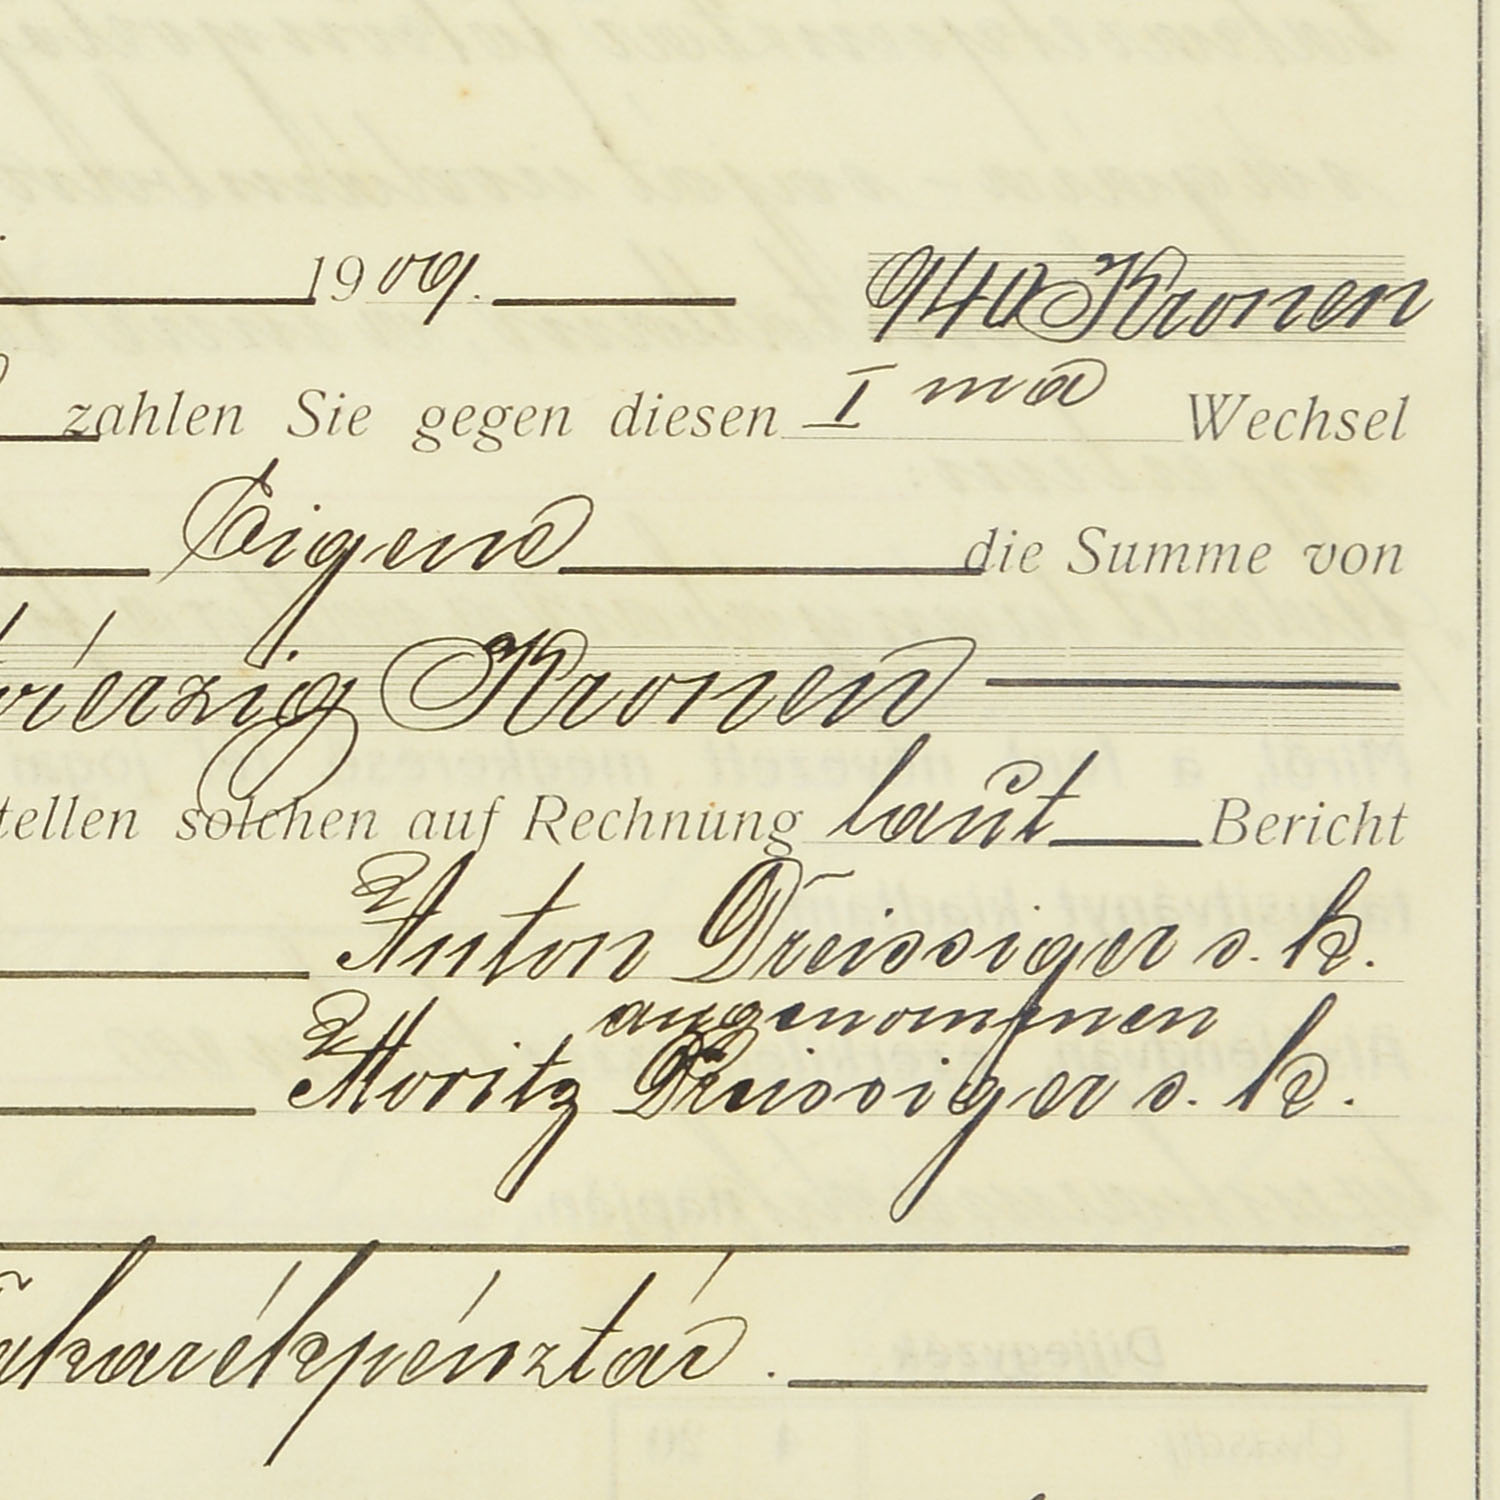 1909. 940 Kronen
zahlen Sie gegen diesen I ma Wechsel
Eigene die Summe von
vierzig Kronen
tellen solchen auf Rechnung laut Bericht
Anton Dreissiger s. k.
angenommen
Moritz Dreissiger s. k.
akarékpénztár.